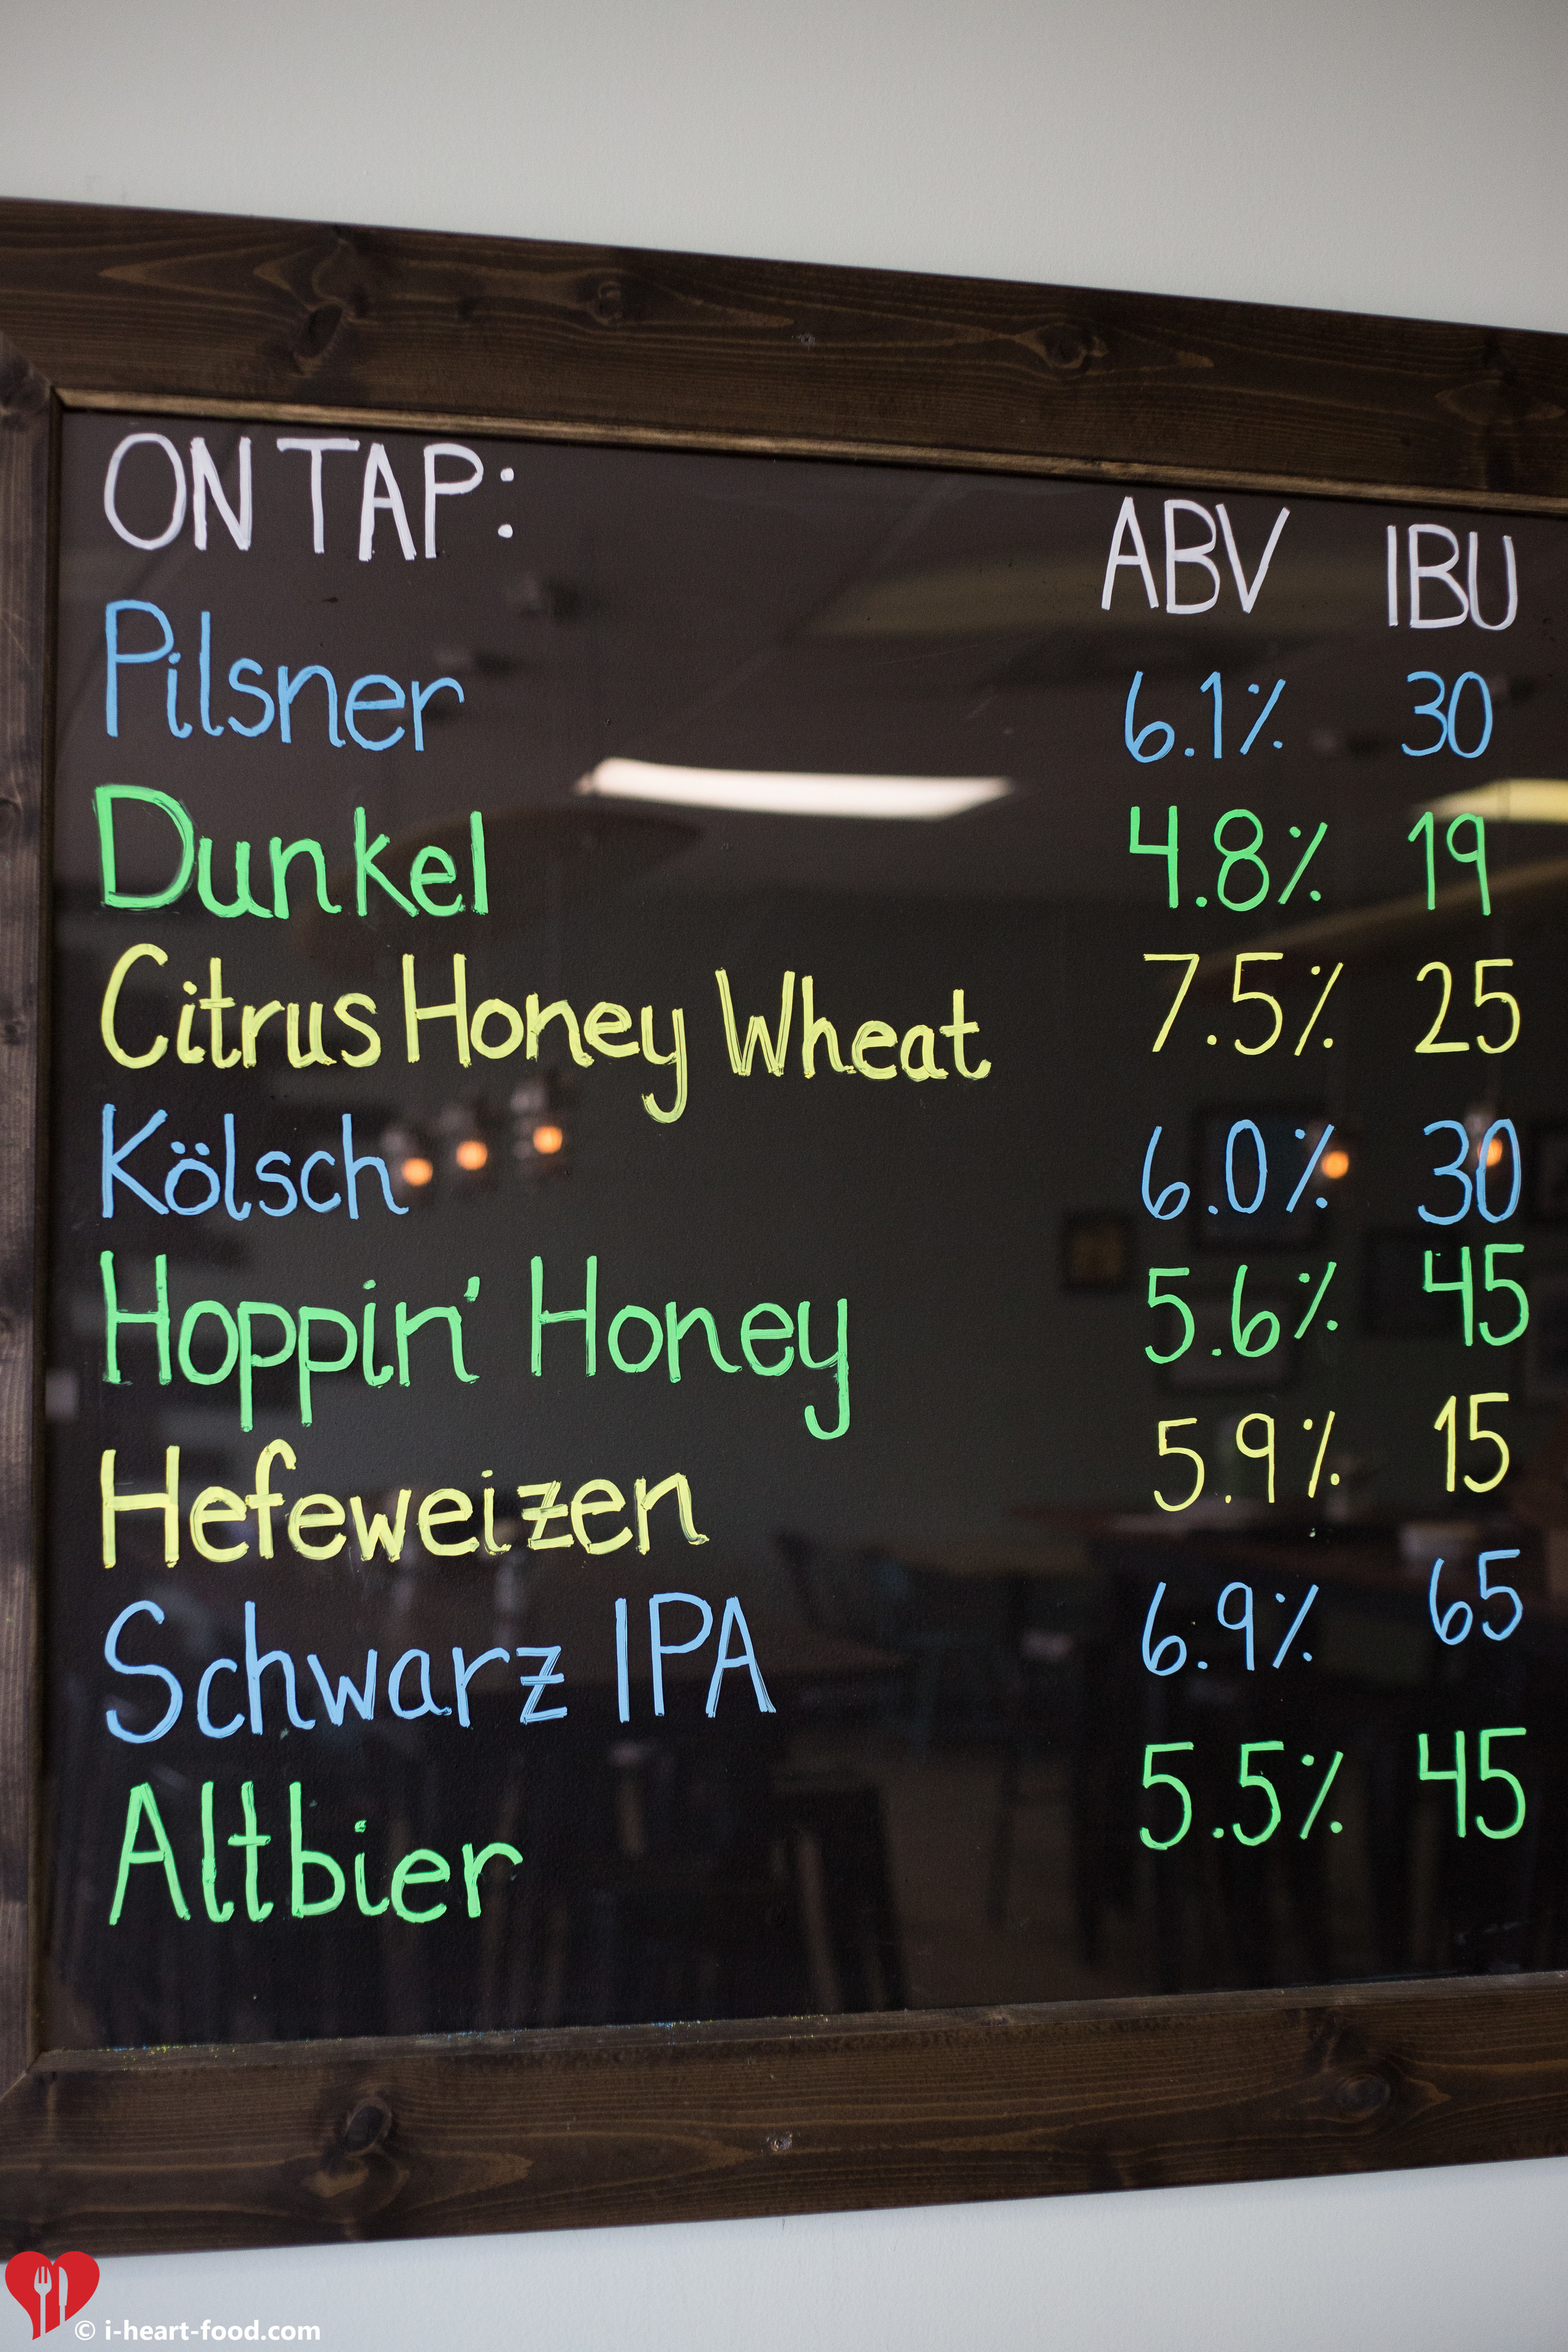 ON TAP: ABV IBU
Pilsner 6.1% 30
Dunkel 4.8% 19
Citrus Honey Wheat 7.5% 25
Kölsch 6.0% 30
Hoppin' Honey 5.6% 45
Hefeweizen 5.9% 15
Schwarz IPA 6.9% 65
Altbier 5.5% 45
© i-heart-food.com